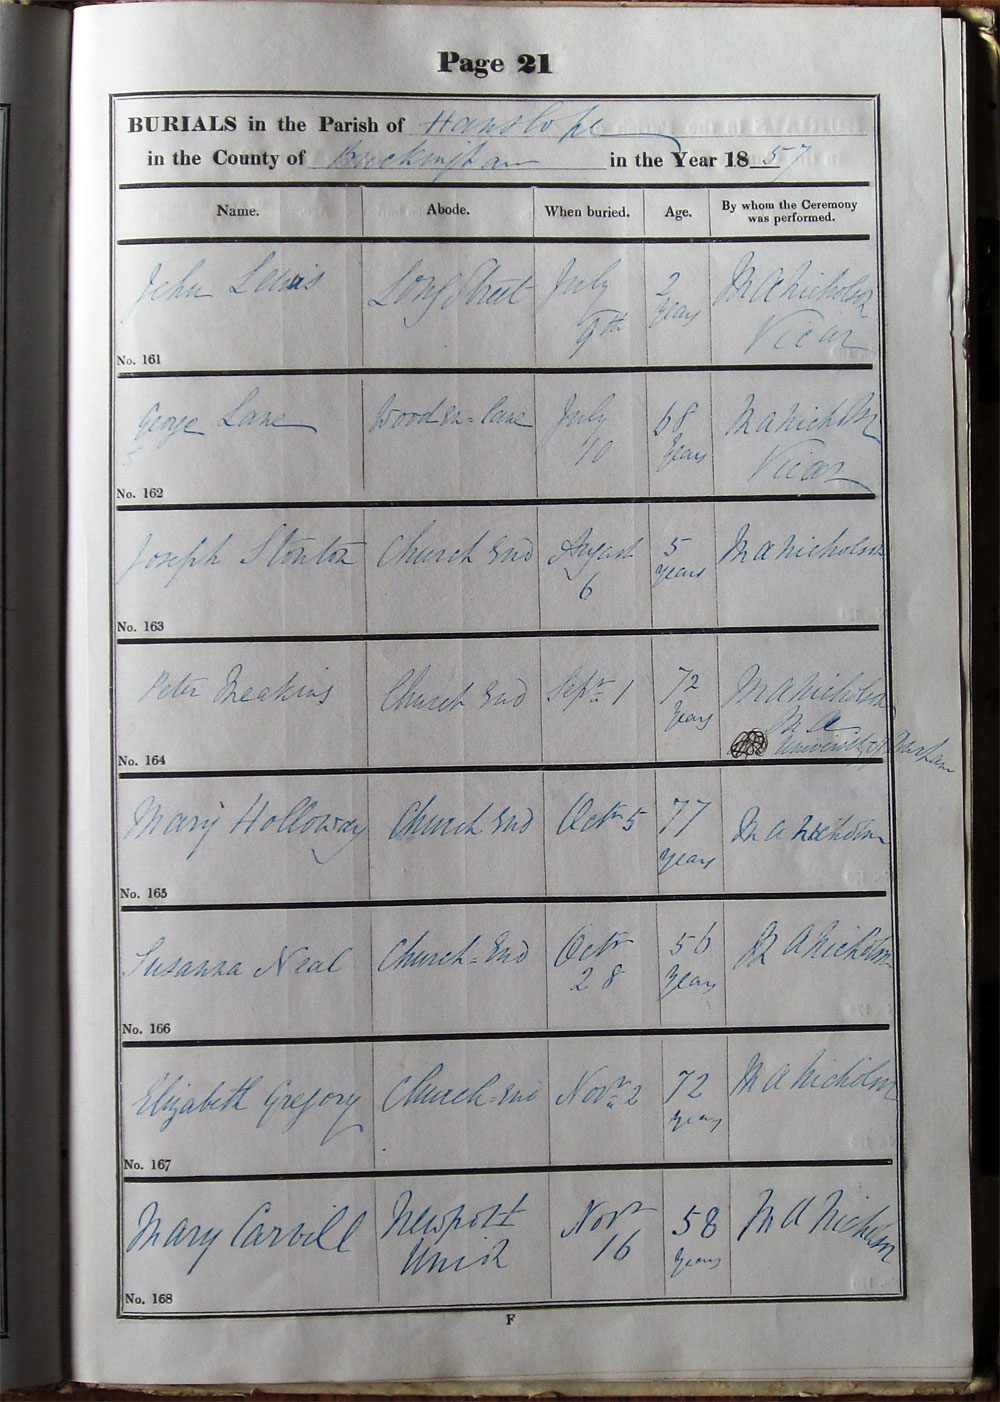 Page 21
BURIALS in the Parish of Hanslope
in the County of Buckingham in the Year 1857
Name. Abode. When buried. Age. By whom the Ceremony was performed.
John Lewis Long Street July 9th 2 years M A Nicholson Vicar
No. 161
George Lane Wooden-lane July 10 68 years M A Nicholson Vicar
No. 162
Joseph Stonton Church End August 6 5 years M A Nicholson
No. 163
Peter Meakins Church End Septr 1 72 years M A Nicholson M A University of Durham
No. 164
Mary Holloway Church End Octr 5 77 years M A Nicholson
No. 165
Susanna Neal Church-End Octr 28 56 years M A Nicholson
No. 166
Elizabeth Gregory Church-End Novr 2 72 years M A Nicholson
No. 167
Mary Carvill Newport Novr 16 58 years M A Nicholson
No. 168
F